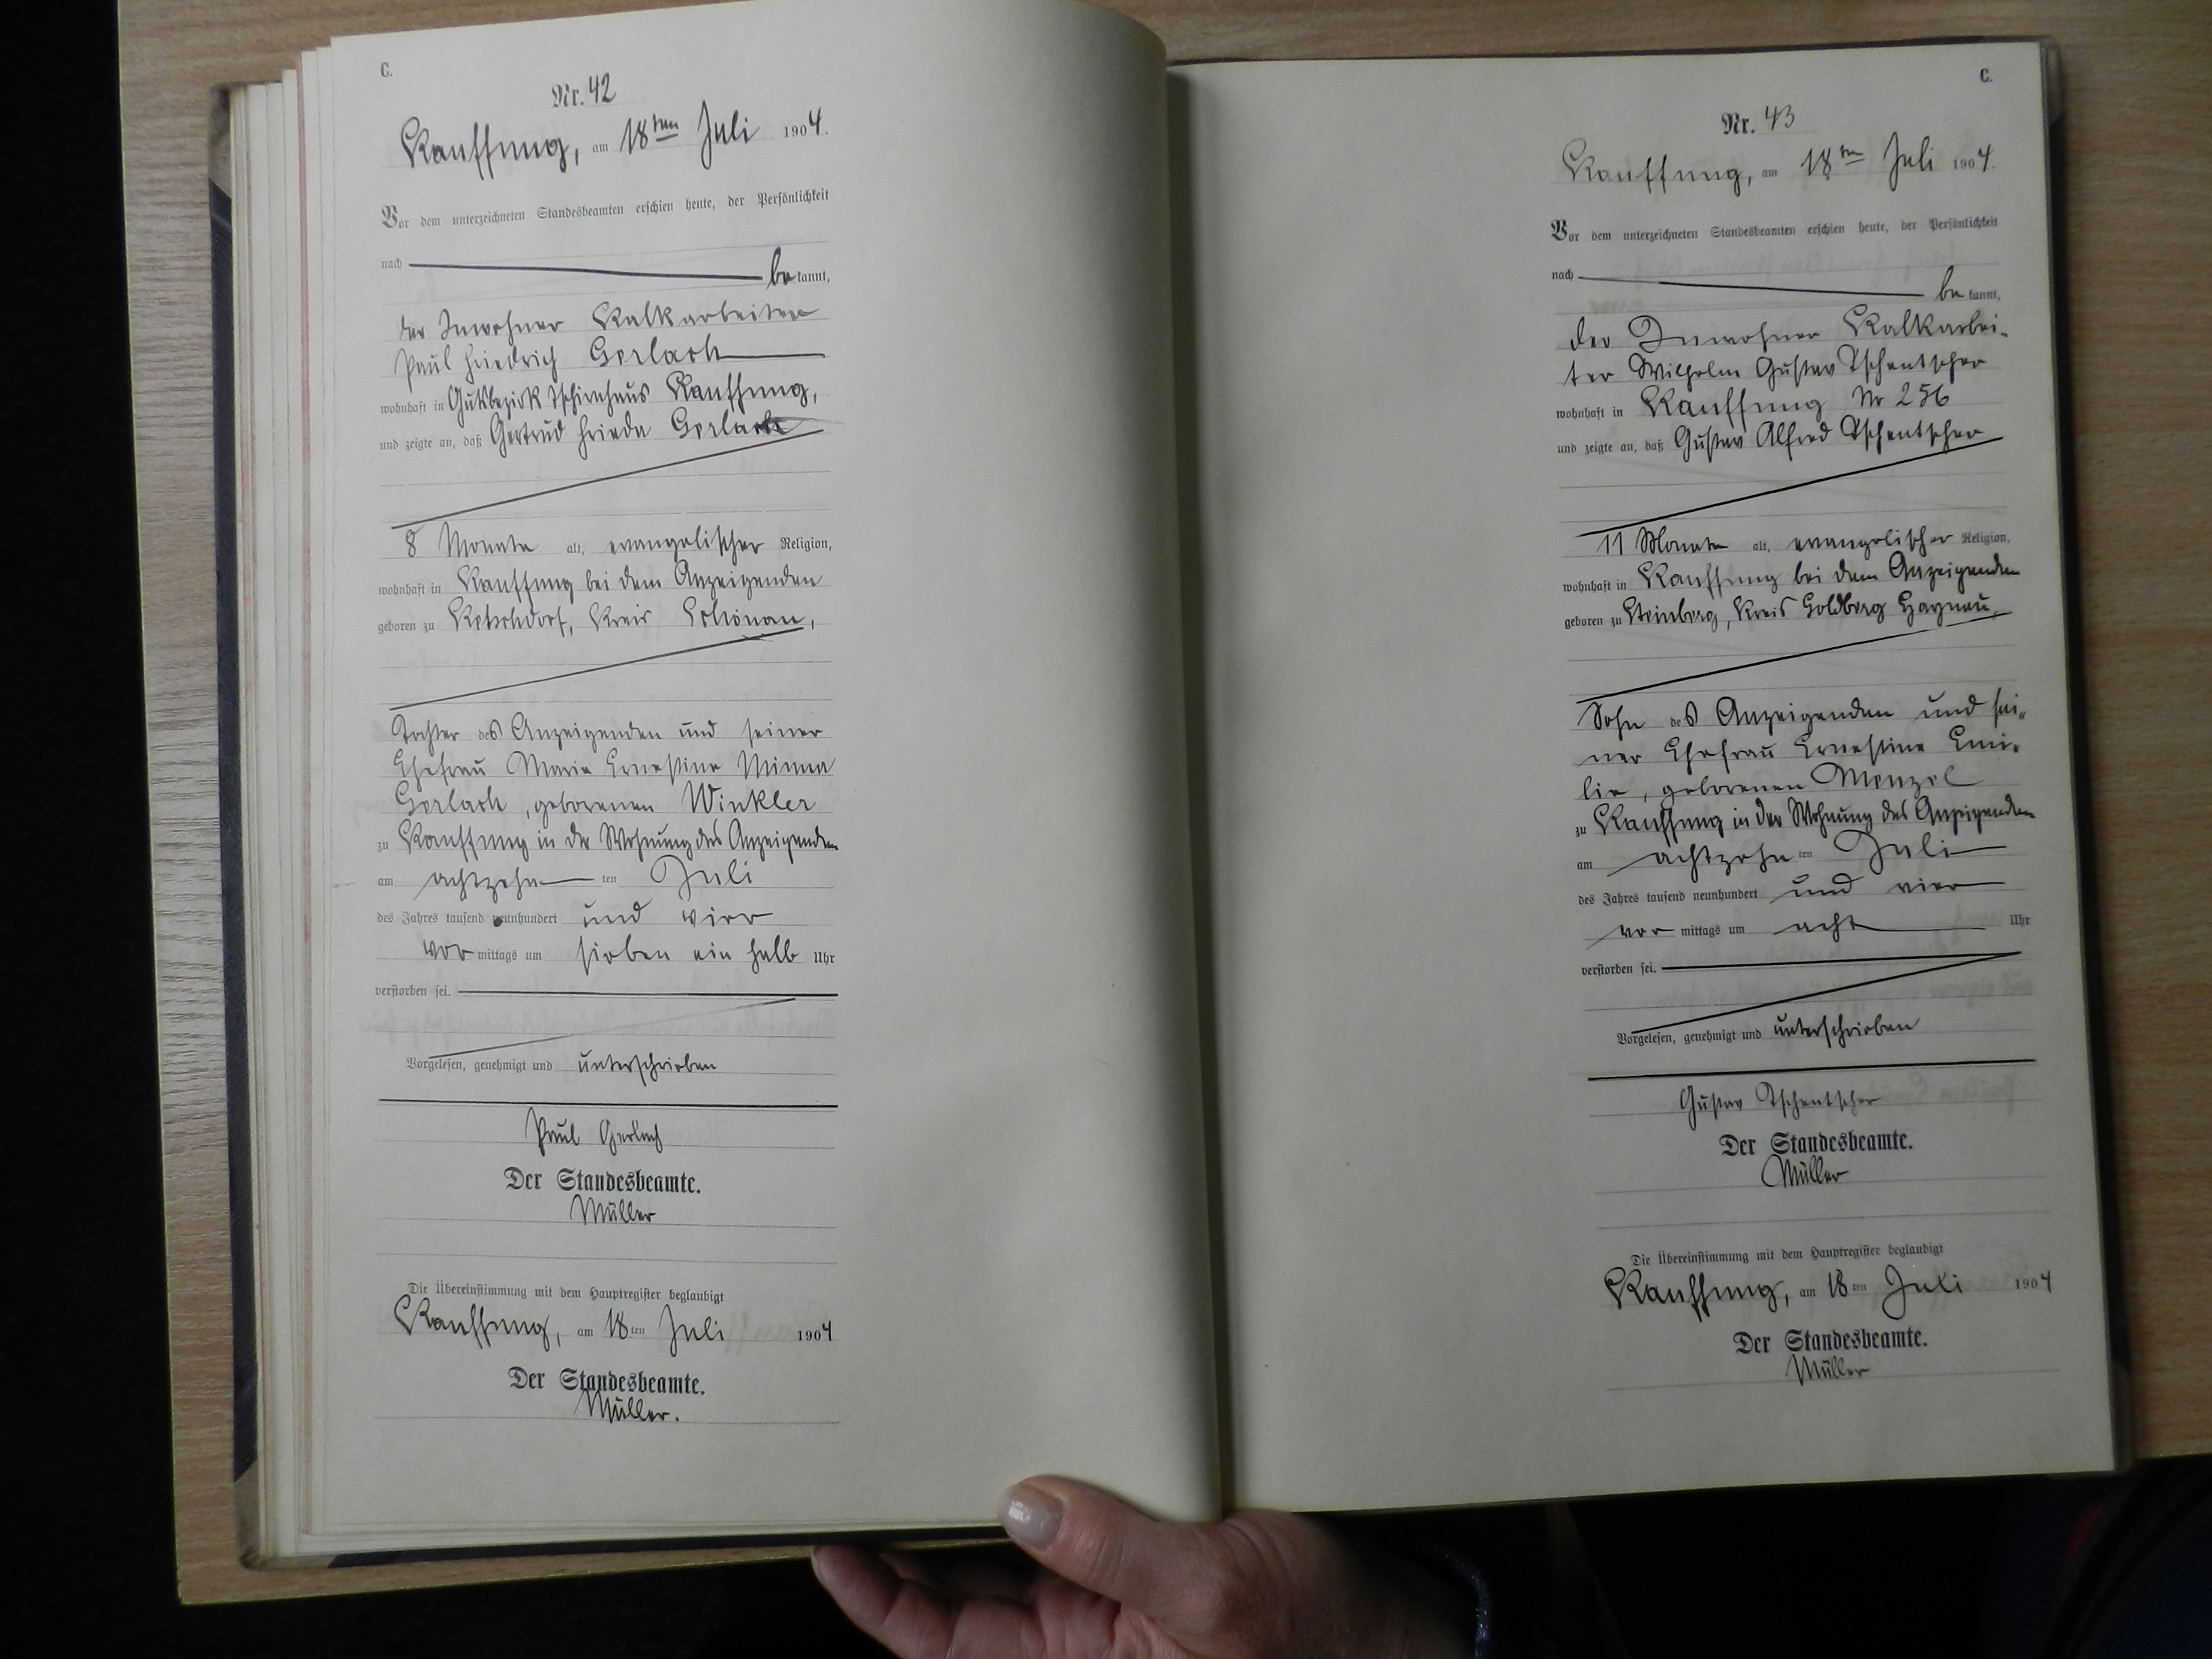 C.
Nr. 42
Kauffung, am 18ten Juli 1904.
Vor dem unterzeichneten Standesbeamten erschien heute, der Persönlichkeit
nach bekannt,
der Inwohner Kalkarbeiter
Paul Friedrich Gerlach
wohnhaft in Gutsbezirk Tschirnhaus Kauffung,
und zeigte an, daß Gertrud Frieda Gerlach
8 Monate alt, evangelischer Religion,
wohnhaft in Kauffung bei dem Anzeigenden
geboren zu Ketschdorf, Kreis Schönau,
Tochter des Anzeigenden und seiner
Ehefrau Marie Ernestine Minna
Gerlach, geborenen Winkler
zu Kauffung in der Wohnung des Anzeigenden
am achtzehnten Juli
des Jahres tausend neunhundert und vier
vormittags um sieben ein halb Uhr
verstorben sei.
Vorgelesen, genehmigt und unterschrieben
Paul Gerlach
Der Standesbeamte.
Müller
Die Übereinstimmung mit dem Hauptregister beglaubigt
Kauffung, am 18ten Juli 1904
Der Standesbeamte.
Müller.
C.
Nr. 43
Kauffung, am 18ten Juli 1904.
Vor dem unterzeichneten Standesbeamten erschien heute, der Persönlichkeit
nach bekannt,
der Inwohner Kalkarbei-
ter Wilhelm Gustav Tschentscher
wohnhaft in Kauffung Nr 256
und zeigte an, daß Gustav Alfred Tschentscher
11 Monate alt, evangelischer Religion,
wohnhaft in Kauffung bei dem Anzeigenden
geboren zu Steinberg, Kreis Goldberg Haynau,
Sohn des Anzeigenden und sei-
ner Ehefrau Ernestine Emi-
lie, geborenen Menzel
zu Kauffung in der Wohnung des Anzeigenden
am achtzehnten Juli
des Jahres tausend neunhundert und vier
vormittags um acht Uhr
verstorben sei.
Vorgelesen, genehmigt und unterschrieben
Gustav Tschentscher
Der Standesbeamte.
Müller
Die Übereinstimmung mit dem Hauptregister beglaubigt
Kauffung, am 18ten Juli 1904
Der Standesbeamte.
Müller